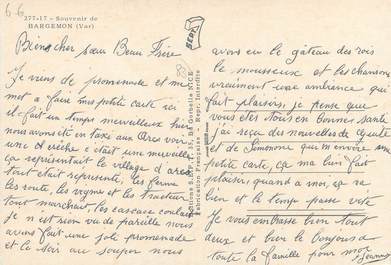 66
277-17 - Souvenir de
BARGEMON (Var)
Bien cher sœur Beau Frère
Je viens de promenade et me
met a faire mes petite carte ici
il fait un temps merveilleux hier
nous avons été in taxe aux Arcs voir
une crèche c était une merveille
ça représentait le village d arcs
tout était représenté, les ferme
les route, les vignes et les tracteur
tout marchait, les cascade coulait
je n est rien vu de pareille nous
avons fait une jolie promenade
et le soir au souper nous
Fabrication Française - Reprod. Interdite
avons eu le gâteau des rois
le mousseux et les chansons
vraiment une ambiance qui
fait plaisirs, je pense que
vous êtes tous en bonnes santé
j ai reçu des nouvelles de
et Simonne qui m envoie une
petite carte, ça ma bien fait
plaisir, quand a moi, ça se
bien et le temps passe vite
Je vous embrasse bien tout
deux et bien le bonjours a
toute la famille pour moi
Jeanne